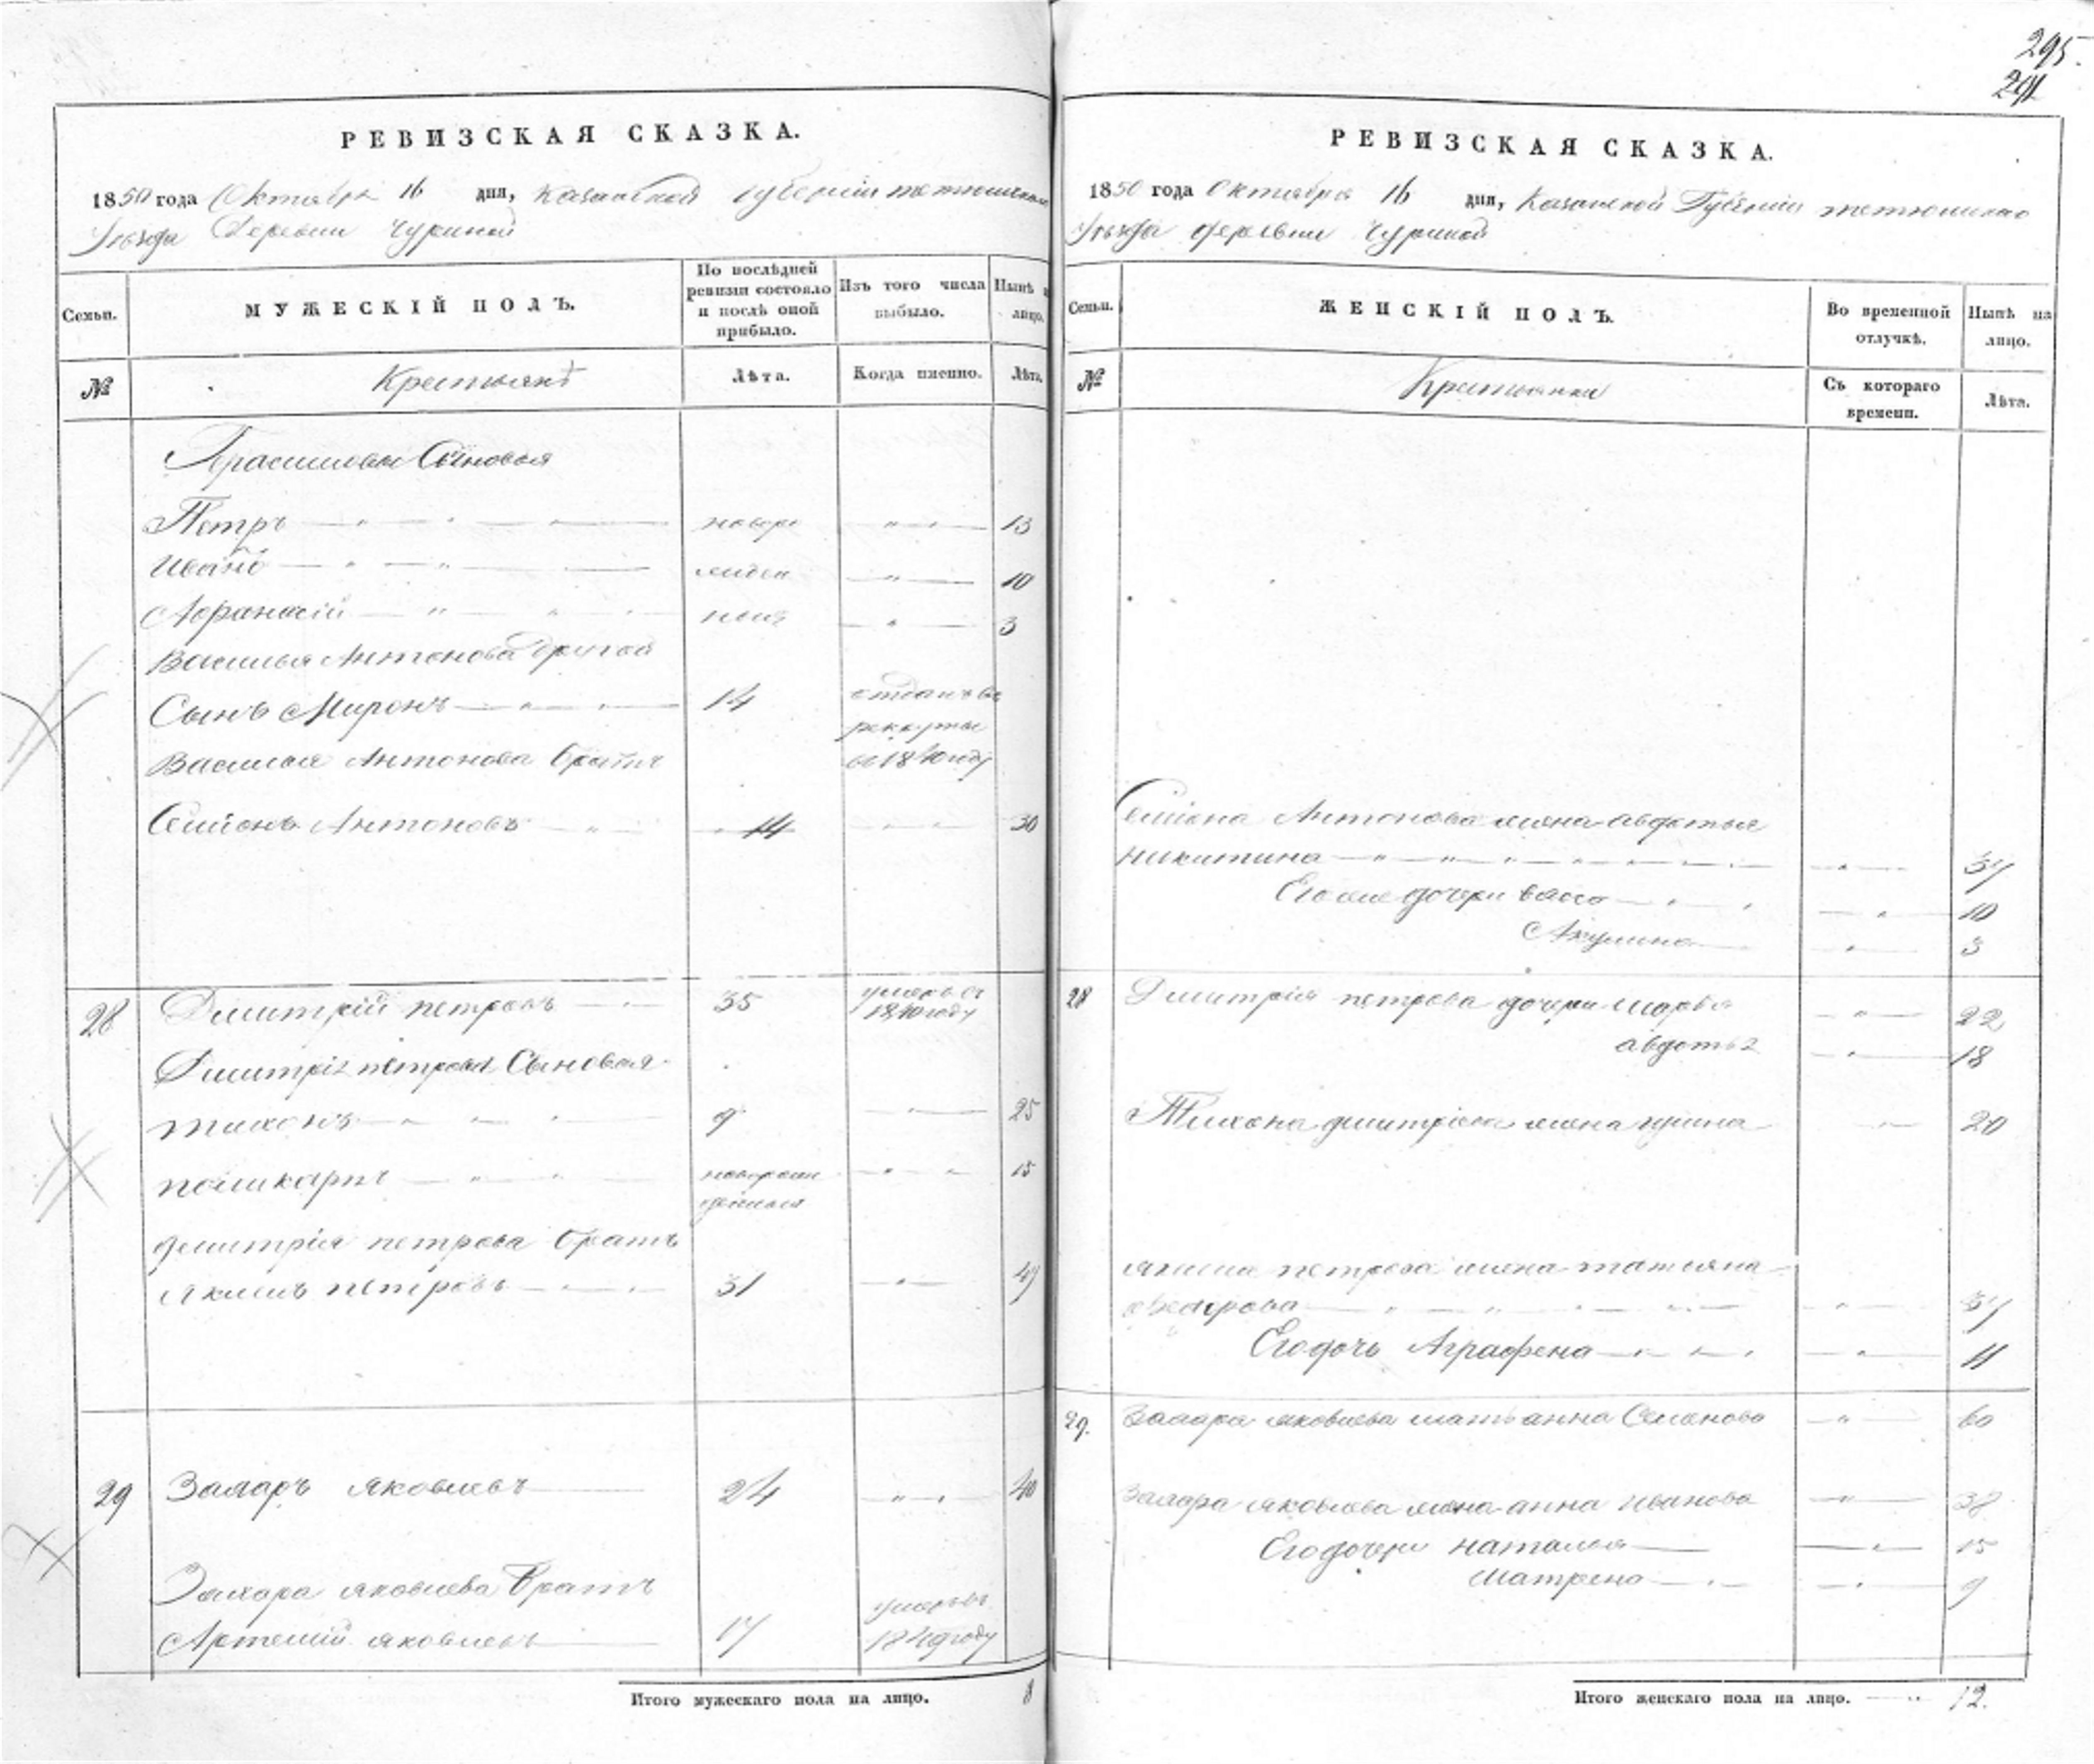 295.
291
РЕВИЗСКАЯ СКАЗКА.
1850 года Октября 16 дня, Казанской Губернии тетюшскаго
Уезда Деревни Чуриной
Семьи.
МУЖЕСКІЙ ПОЛЪ.
По послѣдней ревизіи состояло и послѣ оной прибыло.
Изъ того числа выбыло.
Нынѣ лицо.
№
Крестьянъ
Лѣта.
Когда именно.
Лѣта.
Сыновья
Петръ 13
Иванъ 10
Афанасій 3
Василья Антонова другой
Сынъ Миронъ 14 отданъ въ
рекруты
Василья Антонова братъ въ 1840 году
Семенъ Антоновъ 14 30
28 Дмитрій петровъ 35 умеръ въ
1840 году
Дмитрія петрова Сыновья
тихонъ 9 25
поликарпъ новорож 15
денный
дмитрія петрова братъ
якимъ петровъ 31 47
29 Захаръ яковлевъ 24 40
Захара яковлева братъ умеръ въ
Артемий яковлевъ 17 1849 году
Итого мужескаго пола на лицо. 8
РЕВИЗСКАЯ СКАЗКА.
1850 года Октября 16 дня, Казанской Губернии тетюшскаго
Уезда деревни Чуриной
Семьи.
ЖЕНСКІЙ ПОЛЪ.
Во временной отлучкѣ.
Нынѣ на лицо.
№
Крестьянки
Съ котораго времени.
Лѣта.
Семена Антонова жена авдотья
никитина 37
Его же дочери васса 10
Акулина 3
28 Дмитрія петрова дочери марья 22
авдотья 18
Тихона дмитріева жена ирина 20
якима петрова жена татьяна
федорова 37
Его дочь Аграфена 11
29. Захара яковлева мать анна Семенова 60
Захара яковлева жена анна иванова 38
Его дочери наталья 15
матрена 9
Итого женскаго пола на лицо. 12.